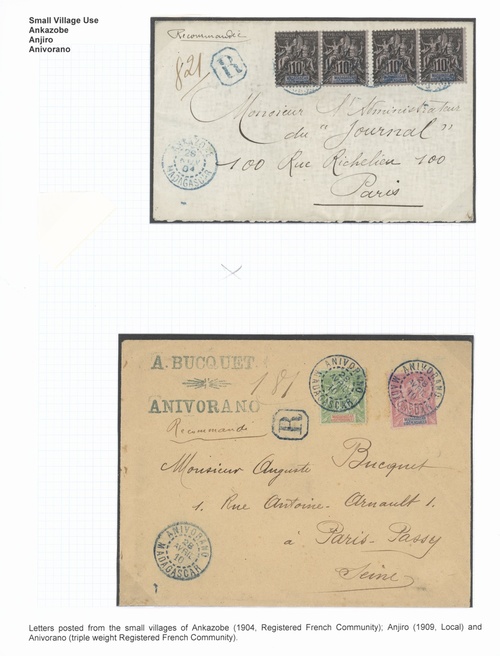 Small Village Use
Ankazobe
Anjiro
Anivorano
Recommandée
821
R
10 10 10 10
Monsieur l'Administrateur
du "Journal"
100 Rue Richelieu 100
Paris
ANKAZOBE
28
04
MADAGASCAR
A. BUCQUET
ANIVORANO
181
Recommandé
R
ANIVORANO
MADAGASCAR
ANIVORANO
Monsieur Auguste Bucquet
1. Rue Antoine-Arnault 1.
à Paris-Passy
Seine
ANIVORANO
28
10
MADAGASCAR
Letters posted from the small villages of Ankazobe (1904, Registered French Community); Anjiro (1909, Local) and
Anivorano (triple weight Registered French Community).